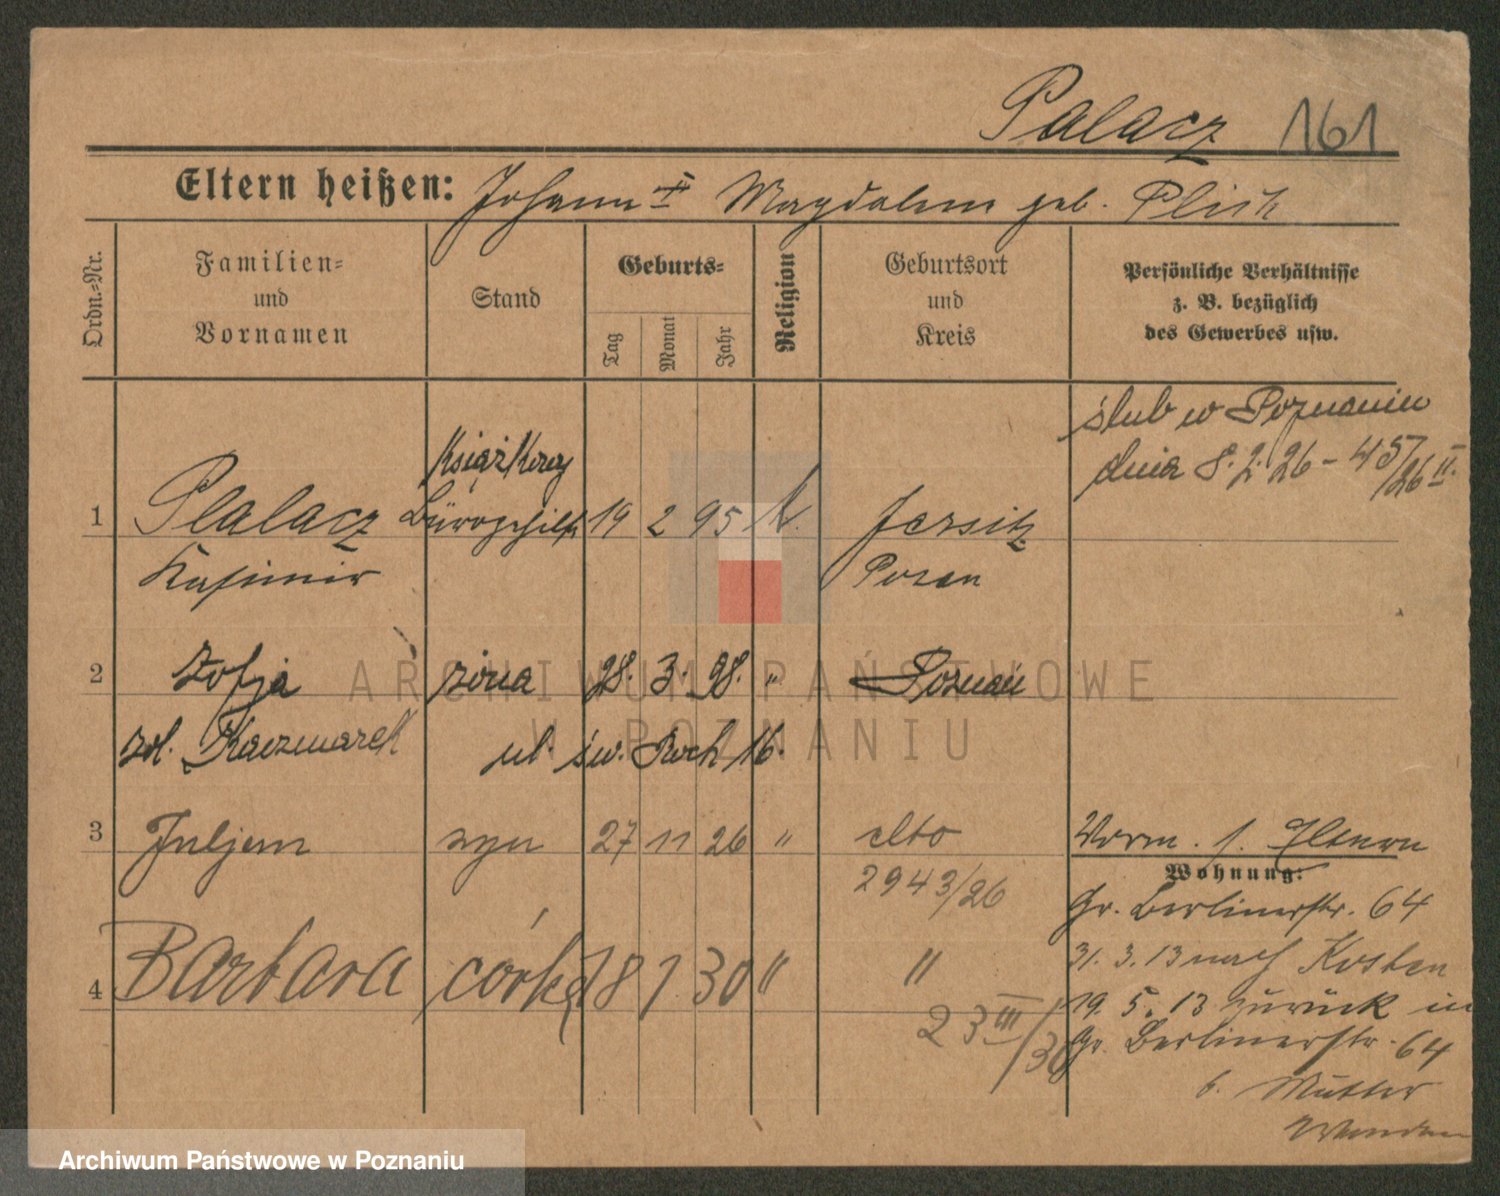 Palacz 161
Eltern heißen: Johann Magdalena geb. Plich
Ordn.-Nr.
Familien-
und
Vornamen
Stand
Geburts-
Tag
Monat
Jahr
Religion
Geburtsort
und
Kreis
Persönliche Verhältnisse
z. B. bezüglich
des Gewerbes usw.
ślub w Poznaniu
dnia 8. 2. 26 - 45/26 II.
Książkowy
1 Palacz Bürogehilfe 19 2 95 k. Jersitz
Kasimir Posen
2 Zofja żona 28. 3. 98. " Poznań
zd. Kaczmarek ul. św. Roch 16.
3 Juljan syn 27 11 26 " dto
2943/26
Vorm. s. Eltern
Wohnung:
Gr. Berlinerstr. 64
31. 3. 13 nach Kosten
4 Barbara córka 18 1 30 " "
23 III/30
19. 5. 13 zurück in
Gr. Berlinerstr. 64
b. Mutter
ARCHIWUM PAŃSTWOWE
W POZNANIU
Archiwum Państwowe w Poznaniu